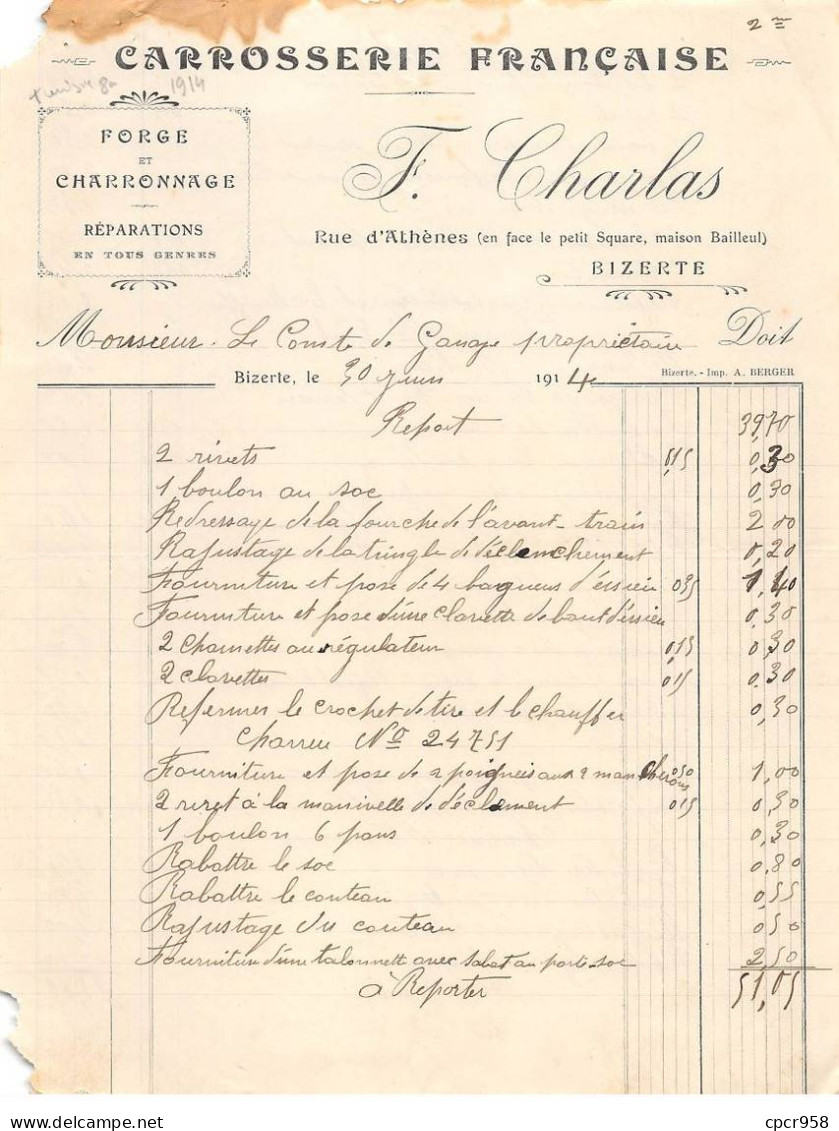 2 me
CARROSSERIE FRANÇAISE
1914
FORGE
ET
CHARRONNAGE
RÉPARATIONS
EN TOUS GENRES
F. Charlas
Rue d'Athènes (en face le petit Square, maison Bailleul)
BIZERTE
Monsieur Le Comte de Ganay propriétaire Doit
Bizerte, le 30 Juin 1914
Bizerte. - Imp. A. BERGER
Report 39,70
2 rivets 0,15 0,30
1 boulon au soc 0,30
Redressage de la fourche de l'avant-train 2,00
Rajustage de la tringle de déclenchement 0,20
Fourniture et pose de 4 bagues d'éssieu 0,35 1,40
Fourniture et pose d'une clavette de bout d'éssieu 0,30
2 chainettes au régulateur 0,15 0,30
2 clavettes 0,15 0,30
Refermer le crochet de tire et le chauffer 0,30
Charrue No 24751
Fourniture et pose de 2 poignées aux 2 mancherons 0,50 1,00
2 rivet à la manivelle de déclement 0,15 0,30
1 boulon 6 pans 0,30
Rabattre le soc 0,80
Rabattre le couteau 0,55
Rajustage du couteau 0,50
Fourniture d'une talonnett avec sabot au porte-soc 2,50
à Reporter 51,05
cpcr958